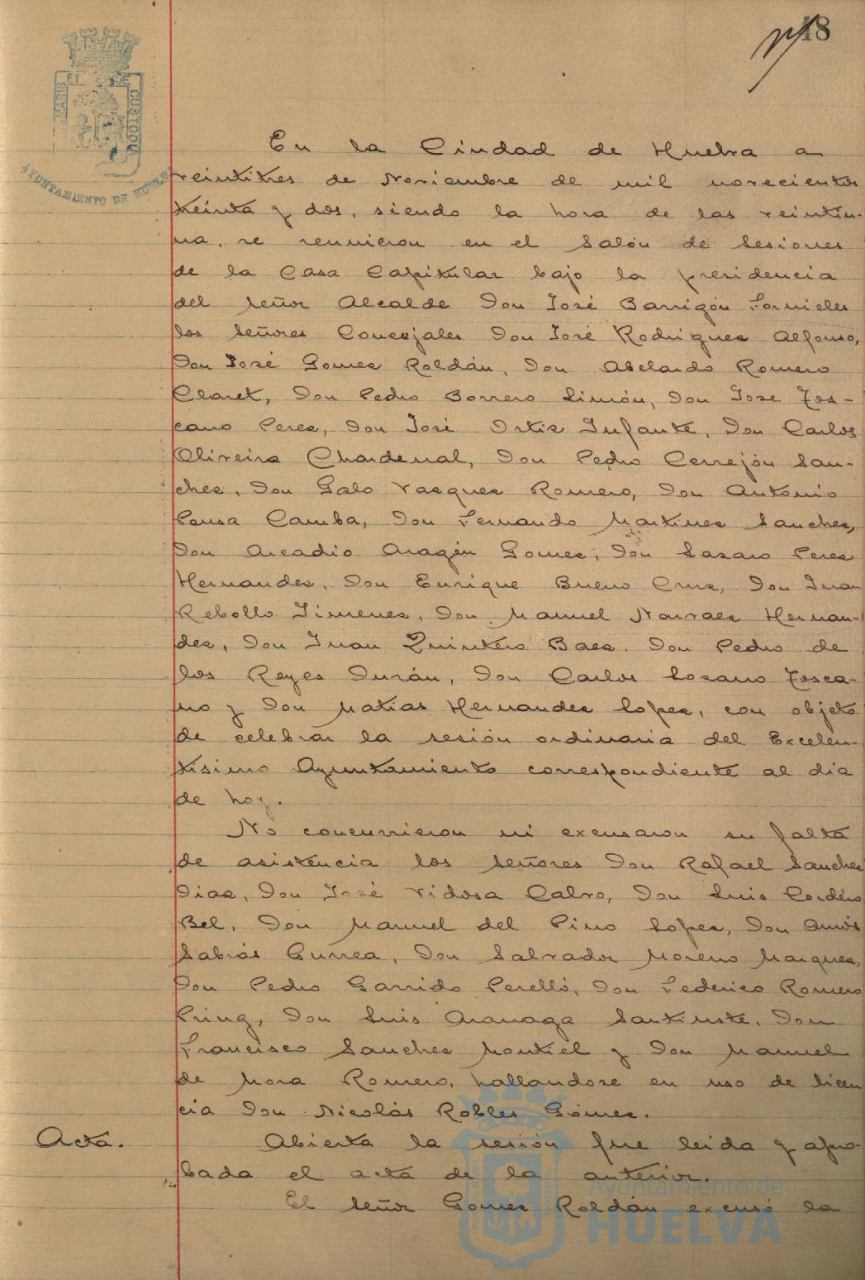 48
PORTUS MARIS ET TERRAE CUSTODIA
AYUNTAMIENTO DE HUELVA
En la Ciudad de Huelva a
veintitres de Noviembre de mil novecientos
treinta y dos, siendo la hora de las veintiu-
na, se reunieron en el Salón de Sesiones
de la Casa Capitular bajo la presidencia
del señor Alcalde Don José Barrigón Fornieles
los señores Concejales Don José Rodriguez Alfonso,
Don José Gomez Roldán, Don Abelardo Romero
Claret, Don Pedro Borrero Limón, Don Jose Tos-
cano Perez, Don José Ortiz Infante, Don Carlos
Oliveira Chardenal, Don Pedro Cerrejón San-
chez, Don Galo Vazquez Romero, Don Antonio
Pousa Camba, Don Fernando Martinez Sanchez,
Don Arcadio Aragón Gomez, Don Lazaro Perez
Hernandez, Don Enrique Bueno Cruz, Don Juan
Rebollo Jimenez, Don Manuel Narvaez Hernan-
dez, Don Juan Quintero Baez. Don Pedro de
los Reyes Durán, Don Carlos Lozano Tosca-
no y Don Matias Hernandez Lopez, con objeto
de celebrar la sesión ordinaria del Excelen-
tisimo Ayuntamiento correspondiente al dia
de hoy.
No concurrieron ni excusaron su falta
de asistencia los señores Don Rafael Sanchez
Diaz, Don José Vidosa Calvo, Don Luis Cordero
Bel, Don Manuel del Pino Lopez, Don Amós
Sabrás Gurrea, Don Salvador Moreno Marquez,
Don Pedro Garrido Perelló, Don Federico Romero
Pring, Don Luis Aranaga Santiuste. Don
Francisco Sanchez Montiel y Don Manuel
de Mora Romero, hallandose en uso de licen
cia Don Nicolás Robles Gómez.
Acta.
Abierta la sesión fue leida y apro
bada el acta de la anterior.
El señor Gomez Roldán excusó la
Ayuntamiento de
HUELVA